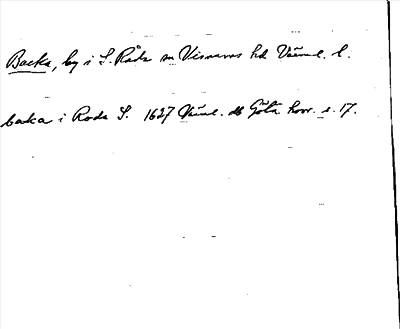 Backa, by i S. Råda sn Visnums hd Värml. l.
backa i Roda S. 1627 Värml. db Göta hovr. s. 17.